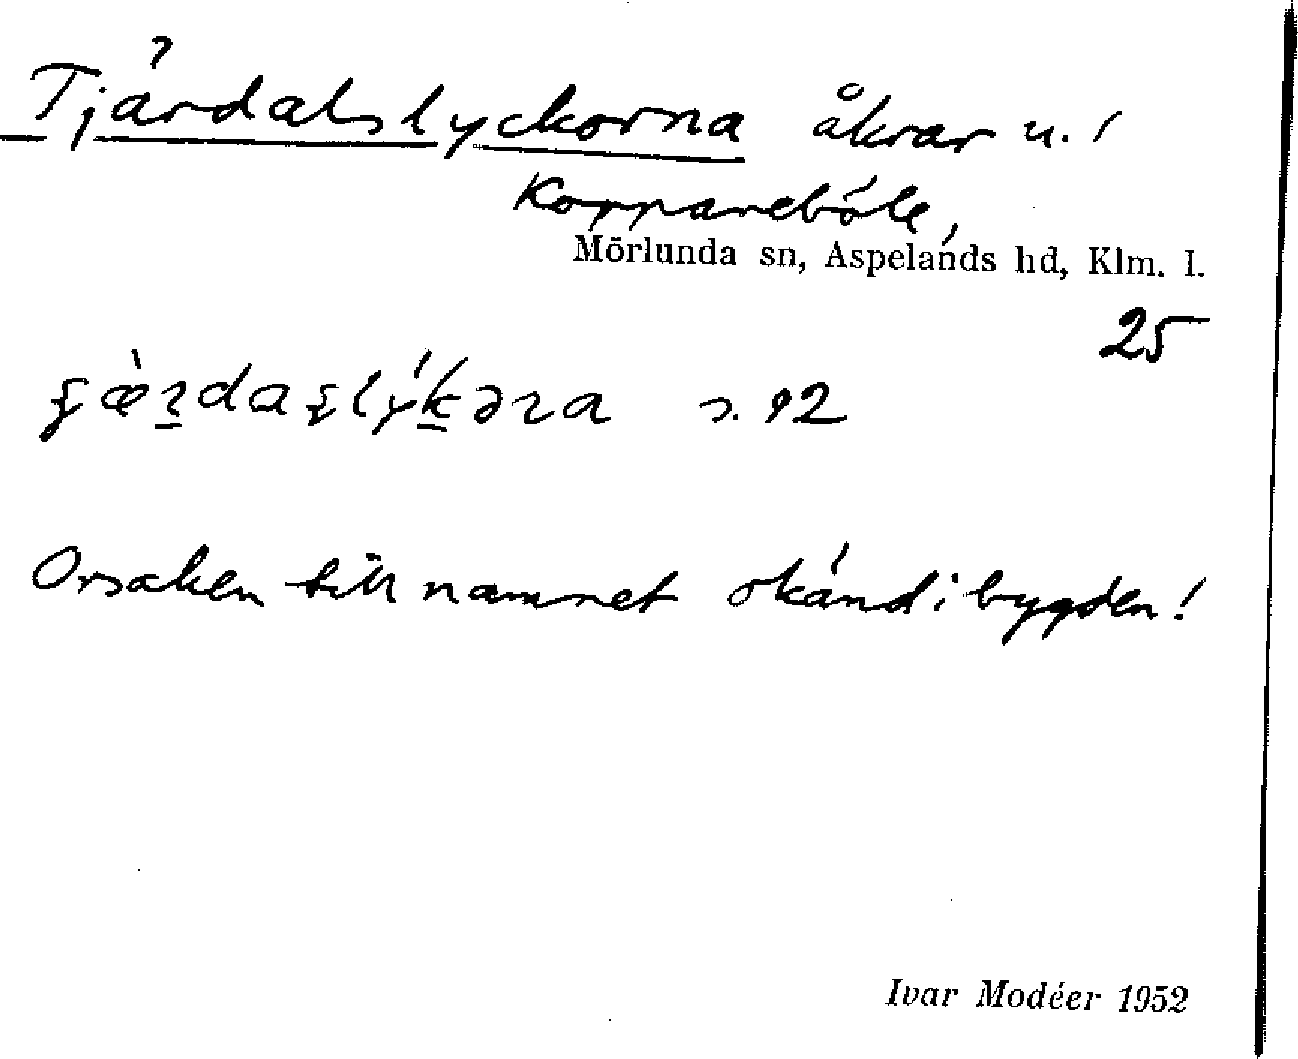 Tjärdalslyckorna åkrar u. /
Koppareböle,
Mörlunda sn, Aspelands hd, Klm. l.
25
s. 92
Orsaken till namnet okänd i bygden!
Ivar Modéer 1952